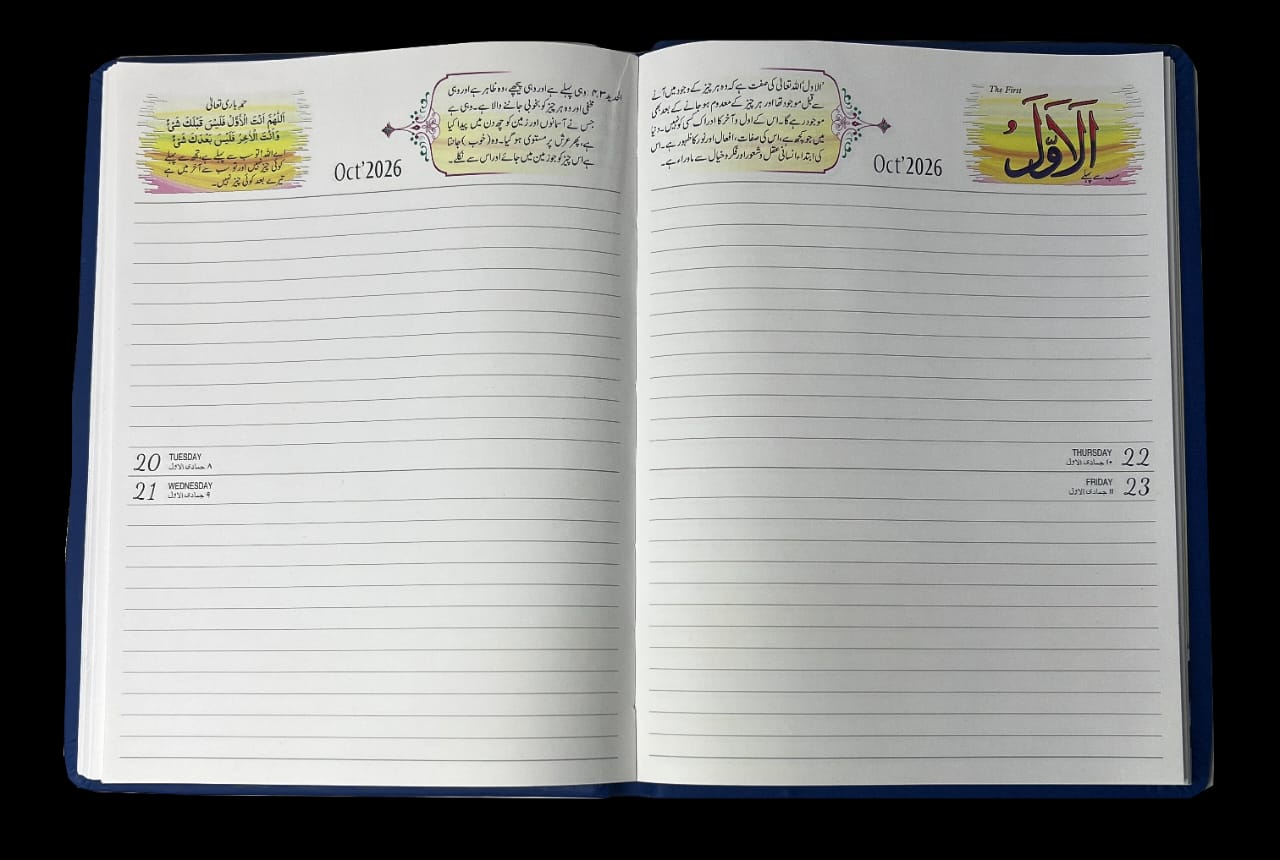 حمد باری تعالیٰ
اَللّٰهُمَّ اَنْتَ الْاَوَّلُ فَلَيْسَ قَبْلَكَ شَيْءٌ
وَاَنْتَ الْاٰخِرُ فَلَيْسَ بَعْدَكَ شَيْءٌ
اے اللہ! تو سب سے پہلے ہے، تجھ سے پہلے
کوئی چیز نہیں اور تو سب سے آخر میں ہے
تیرے بعد کوئی چیز نہیں۔
Oct'2026
الحدید ۴،۳: وہی پہلے ہے اور وہی پیچھے، وہ ظاہر ہے اور وہی
مخفی اور وہ ہر چیز کو بخوبی جاننے والا ہے۔ وہی ہے
جس نے آسمانوں اور زمین کو چھ دن میں پیدا کیا
ہے، پھر عرش پر مستوی ہو گیا۔ وہ (خوب) جانتا
ہے اس چیز کو جو زمین میں جائے اور اس سے نکلے۔
20 TUESDAY
۸ جمادی الاول
21 WEDNESDAY
۹ جمادی الاول
'الاول' اللہ تعالیٰ کی صفت ہے کہ وہ ہر چیز کے وجود میں آنے
سے قبل موجود تھا اور ہر چیز کے معدوم ہو جانے کے بعد بھی
موجود رہے گا۔ اس کے اول و آخر کا ادراک کسی کو نہیں۔ دنیا
میں جو کچھ ہے، اس کی صفات، افعال اور نور کا ظہور ہے۔ اس
کی ابتداء انسانی عقل و شعور اور فکر و خیال سے ماوراء ہے۔
Oct'2026
The First
اَلْاَوَّلُ
سب سے پہلے
THURSDAY 22
۱۰ جمادی الاول
FRIDAY 23
۱۱ جمادی الاول